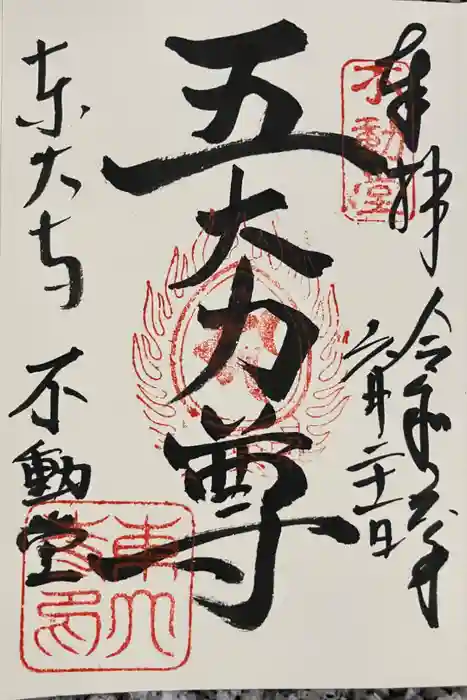 奉拝
不動堂
令和六年
六月二十一日
五大力尊
東大寺 不動堂
東大
寺印